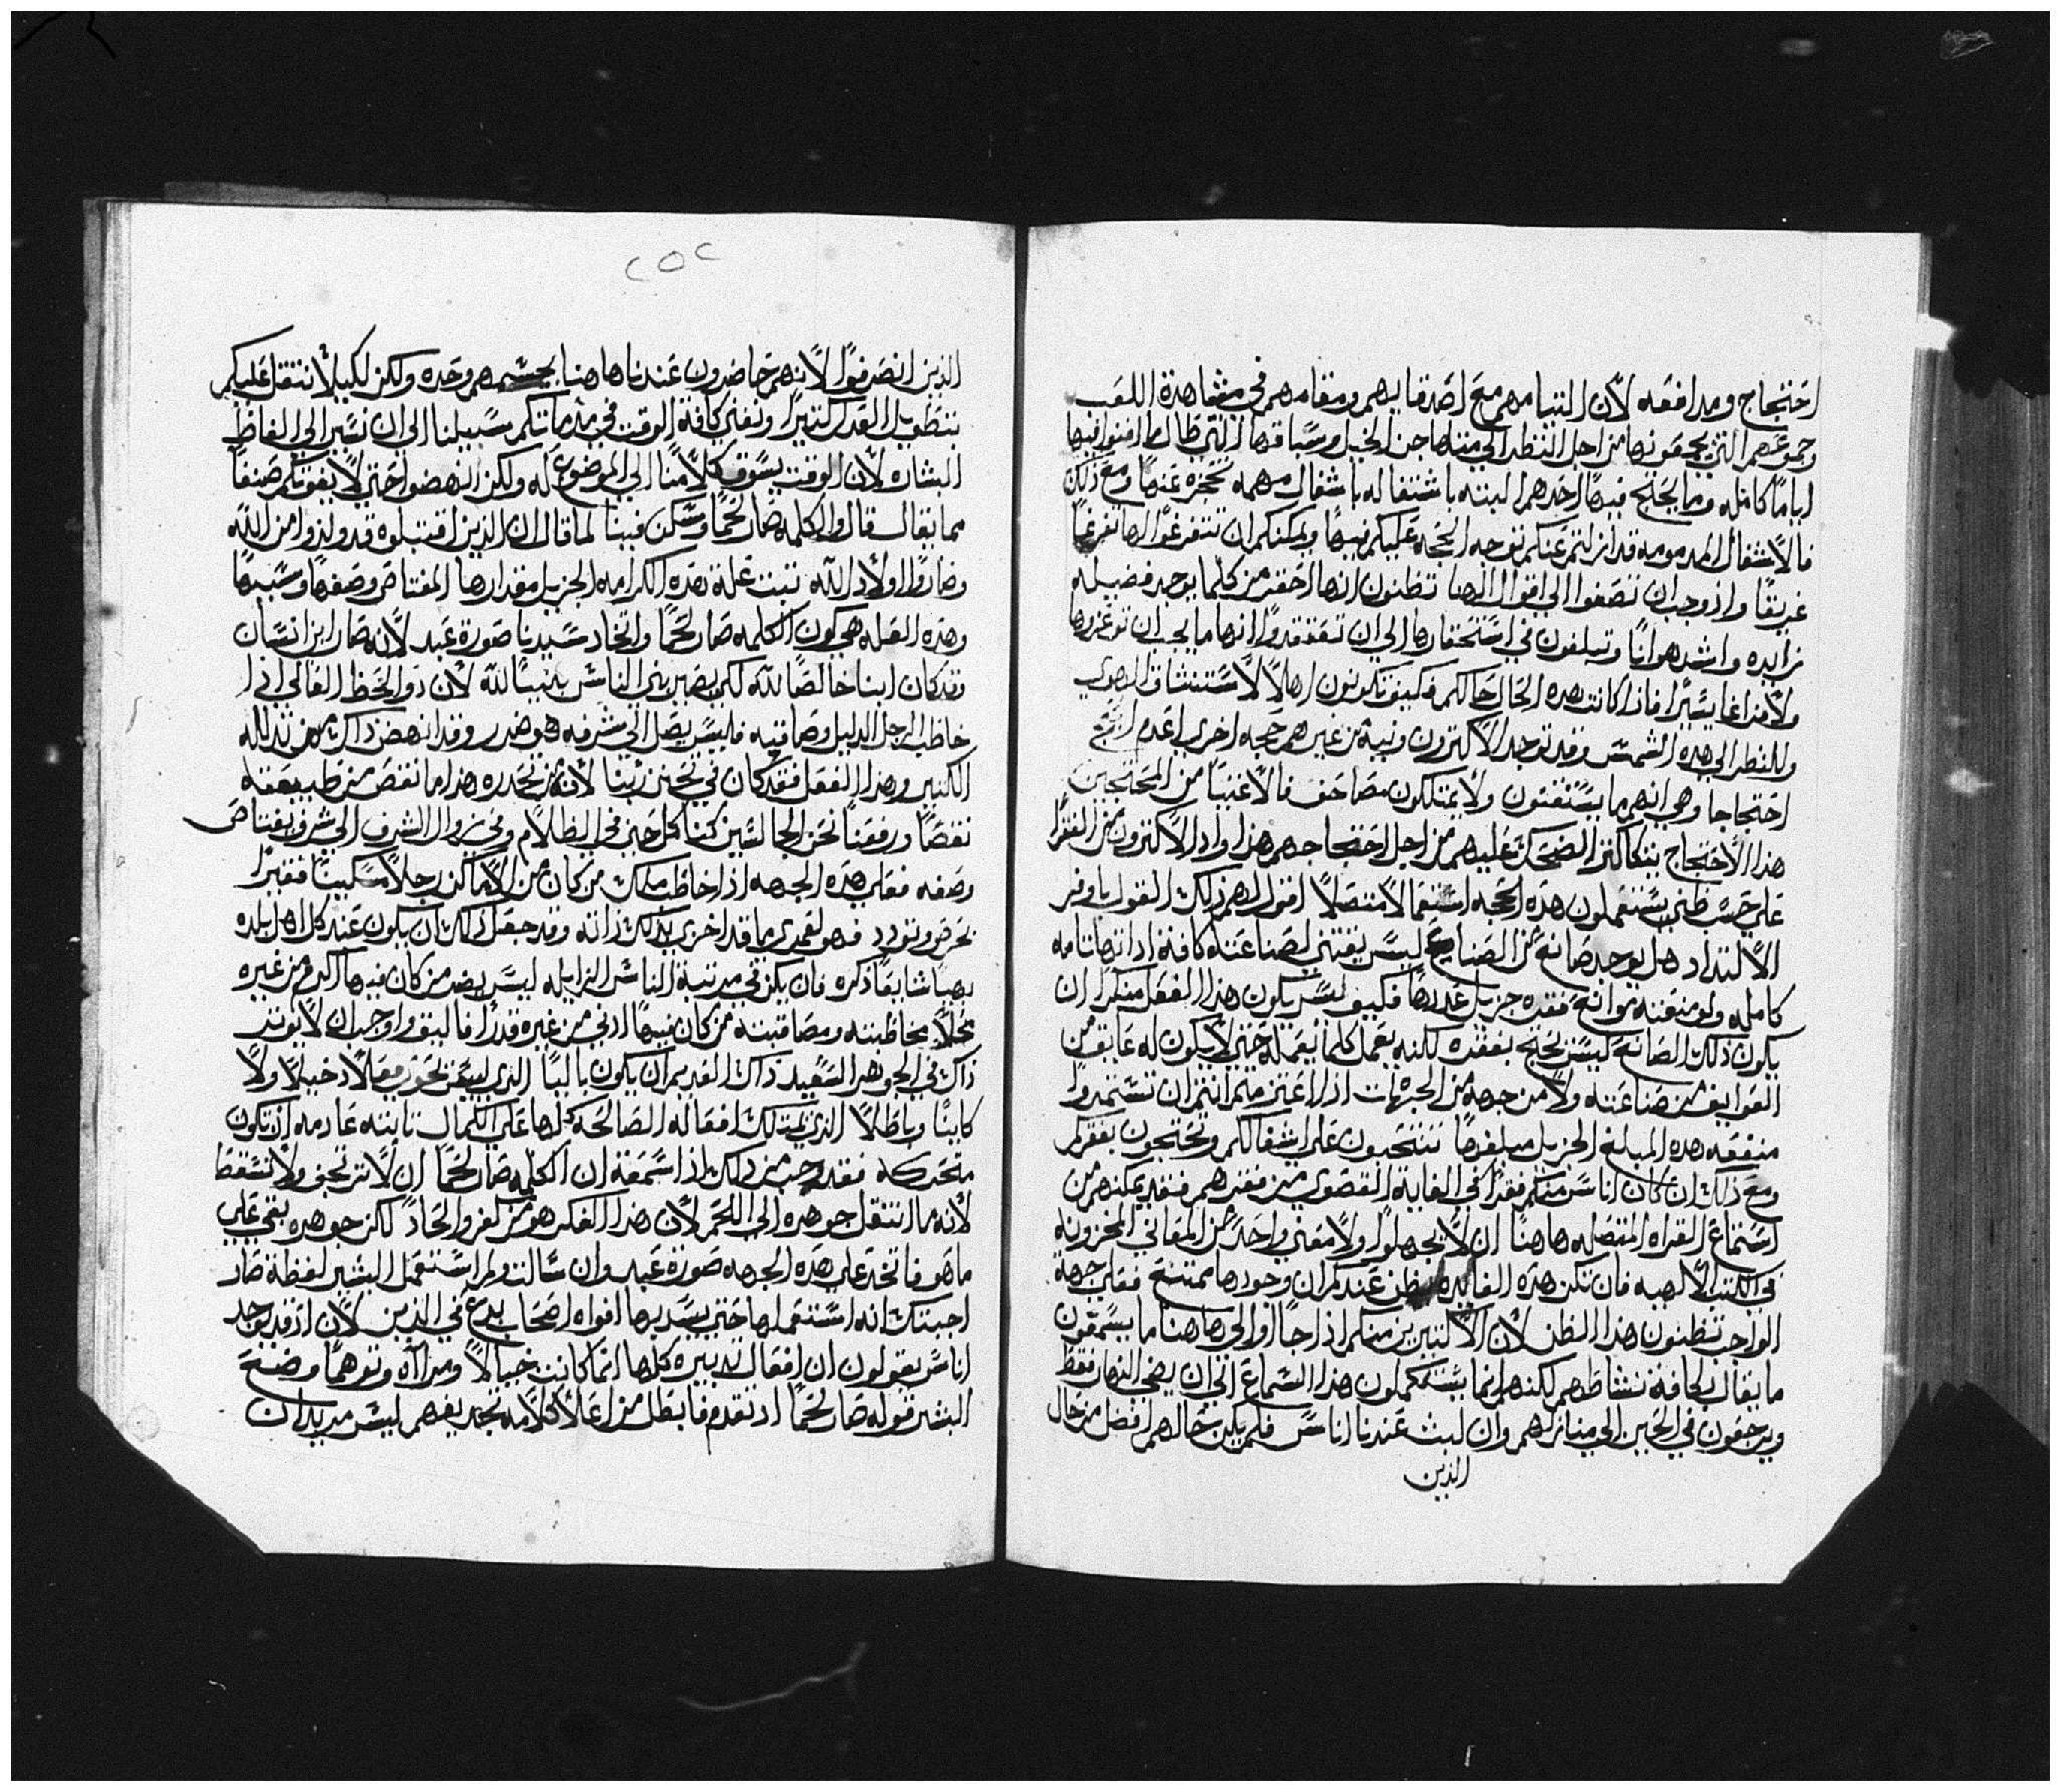 احتجاج ومدافعه لان التيامهم مع اصدقايهم ومقامهم في مشاهدة اللعب
وجموعهم التي يجمعونها من اجل النظر الي مناهجن الخيل وسباقها التي طال ما افنوا فيها
اياما كامله وما يحتج فيها احدهم البته باشتغاله باشغال مهمه تحجزه عنها ومع ذلك
فالاشغال المدمومه قد ازلتم عنكم توجه الحجه عليكم فيها ويمكنكم ان تتفرغوا لها تفرغا
غريقا واذ وجب ان تصغوا الي اقوال الهنا تظنون انها احقر من كلما يوجد فضيله
زايده واشد هوانا وتبلغون في استحقارها الي ان تعتقدوا انها ما يجب ان توعزوها
ولا فراغا يسيرا فاذا كانت هذه الحال حالكم فكيف تكونون اهلا لاستنشاق الهوي
وللنظر الي هذه الشمس وقد توجد لاكترون ونيه من غيرهم حجه اخري اعدم
احتجاجا وهي انهم ما يستفتون ولا يمتلكون مصاحف فالاغنيا من المحتجين
هذا الاحتجاج يتكاتر الضحك عليهم من اجل احتجاجهم هذا واذ الاكترون من الفقرا
علي حسب ظني يستعملون هذه الحجه استعمالا متصلا اقول لهم ذلك القول باوفر
الالتداد هل يوجد صانع من الصنايع ليس يقتني لصناعته كافة اداتها تامه
كامله ولو منعته موانع فقره جزيل عددها فكيف ليس يكون هذا الفعل منكرا ان
يكون ذلك الصانع ليس يحتج بفقره لكنه يعمل كلما يعمله حتي لا يكون له عايق من
العوايق من صناعته ولا من جهه من الجهات اذا اعتزمتم انتم ان تستمدوا
منفعه هذه المبلغ الجزيل مبلغها تنتحبون علي اشغالكم وتحتجون بفقركم
ومع ذلك ان كان اناس منكم فقرا في الغاية القصوي من فقرهم فقد يمكنهم من
استماع القراه المتصله هاهنا ان لا يجهلوا ولا معني واحد من المعاني المخزونه
في الكتب الالهيه فان تكن هذه الفايده يظن عندكم ان وجودها ممتنع فعلي جهة
الواجب تظنون هذا الظن لان الاكتيرين منكم اذا جاوا الي هاهنا ما يسمعون
ما يقال بكافة نشاطهم لكنهم انما يستكملون هذا السماع الي ان يضي النهار فقط
ويرجعون في الحين الي منازلهم وان لبث عندنا اناس فلم يكن حالهم افضل من حال
الذين
٢٥٢
الذين انصرفوا لانهم حاضرون عندنا هاهنا بجسمهم وحده ولكن لكيلا نتقل عليكم
بتطويل القدل كتيرا ونفني كافة الوقت في مدماتكم سبيلنا الي ان نسير الي الفاظ
البشاره لان الوقت يسوق كلامنا الي الموضوع له ولكن انهضوا حتي لا يفوتكم صنفا
مما يقال قال والكلمه صار لحما وسكن فينا لما قال ان الذين اقتبلوه قد ولدوا من الله
وصاروا اولاد الله تبت علة هذه الكرامه الجزيل مقدارها المفتاص وصفها وسببها
وهذه العله هي كون الكلمه صار لحما واتخاد سيدنا صورة عبد لانه صار ابن انسان
وقد كان ابنا خالصا لله لكي يصير بني الناس بنينا لله لان دو الحظ العالي اذا
خاطب الرجل الدليل وصاقبه فليس يصل الي شرفه هو ضرر وقد انهض ذاك من تدلله
الكتير وهذا الفعل فقد كان في تحنن ربنا لان في تحدره هذا ما نقص من طبيعته
نقصا ورفعنا نحن الجالسين كنا كل حين في الظلام وفي زوال الشرف الي شرف يفتاص
وصفه فعلي هذه الجهه اذا خاطب ملك من كان من الاماكن رجلا مسكينا فقيرا
بحرص وتودد فهو لعمري ما قد اخزي بذلك ذاته وقد جعل ذلك ان يكون عند كل اهل بلده
بهيا شايعا ذكره فان يكن في مرتبة الناس الزايله ليس يضر من كان فيها اكرم من غيره
محلا مخاطبته ومصاقبته من كان فيها ادني من غيره قدرا فاليق واوجب ان لا يوتر
ذاك في الجوهر السعيد ذاك العديم ان يكون باليا الذي ليس يحوي فعلا دخيلا ولا
كاينا وباطلا الذي يمتلك افعاله الصالحه كلها علي الكمال تابته عادمه ان تكون
متحركه فقد وجب من ذلك اذ اسمعه ان الكلمه صار لحما ان لا ترتجف ولا تسقط
لانه ما انتقل جوهره الي اللحم لان هذا الفكر هو من كفر والحاد لاكن جوهره بقي علي
ما هو فاتخد علي هذه الجهه صورة عبد وان سالت ولم استعمل البشير لفظة صار
اجبتك انه استعملها حتي يسد بها افواه اصحاب بدع في الدين لان اذ قد توجد
اناس يقولون ان افعال تدبيره كلها انما كانت خيالا ومراآه وتوهما وضع
البشير قوله صار لحما اذ تقدم فابطل من اعلا كلامه تجديفهم ليس مريدا ان